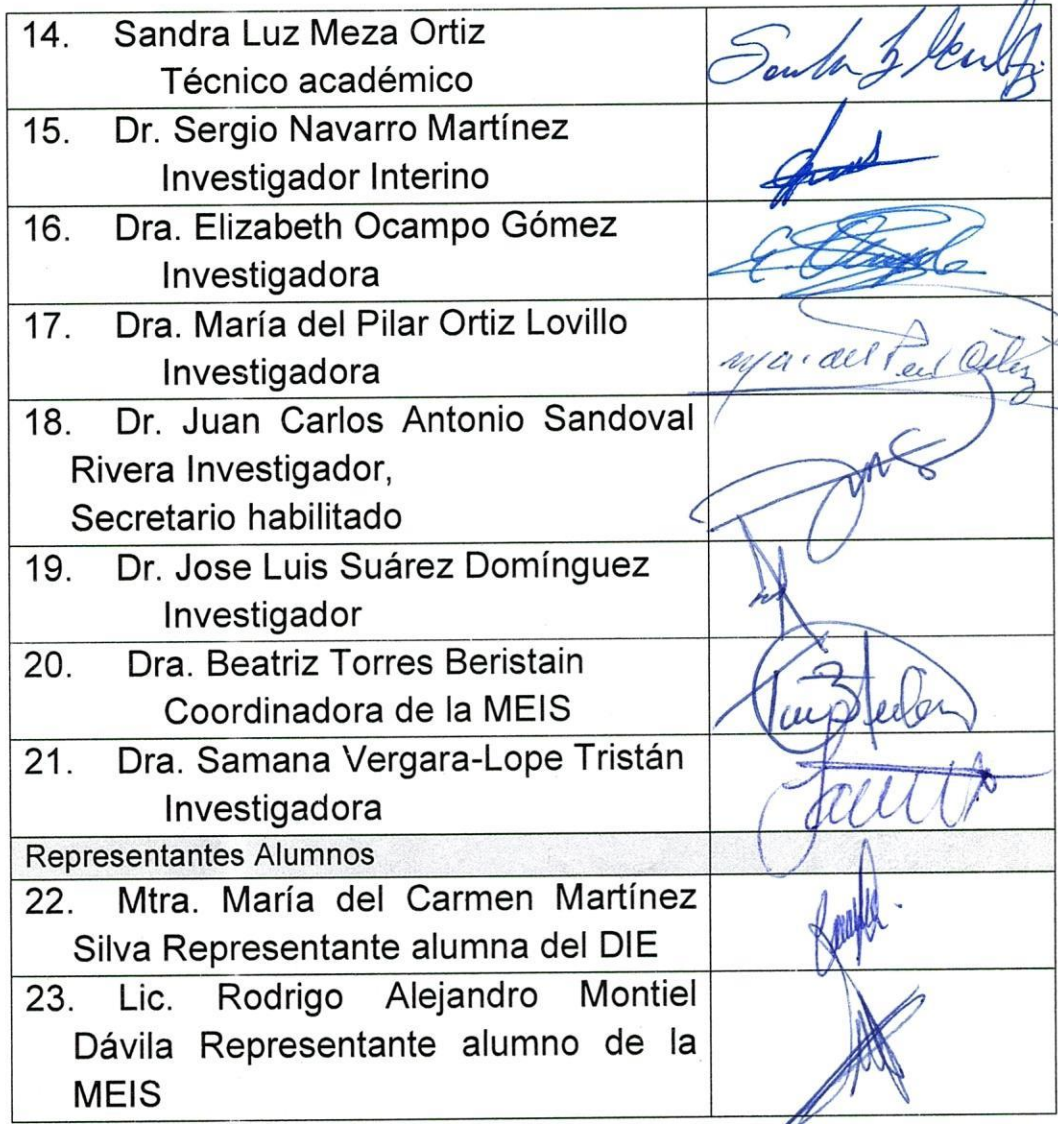 14. Sandra Luz Meza Ortiz
Técnico académico
15. Dr. Sergio Navarro Martínez
Investigador Interino
16. Dra. Elizabeth Ocampo Gómez
Investigadora
17. Dra. María del Pilar Ortiz Lovillo
Investigadora
18. Dr. Juan Carlos Antonio Sandoval
Rivera Investigador,
Secretario habilitado
19. Dr. Jose Luis Suárez Domínguez
Investigador
20. Dra. Beatriz Torres Beristain
Coordinadora de la MEIS
21. Dra. Samana Vergara-Lope Tristán
Investigadora
Representantes Alumnos
22. Mtra. María del Carmen Martínez
Silva Representante alumna del DIE
23. Lic. Rodrigo Alejandro Montiel
Dávila Representante alumno de la
MEIS